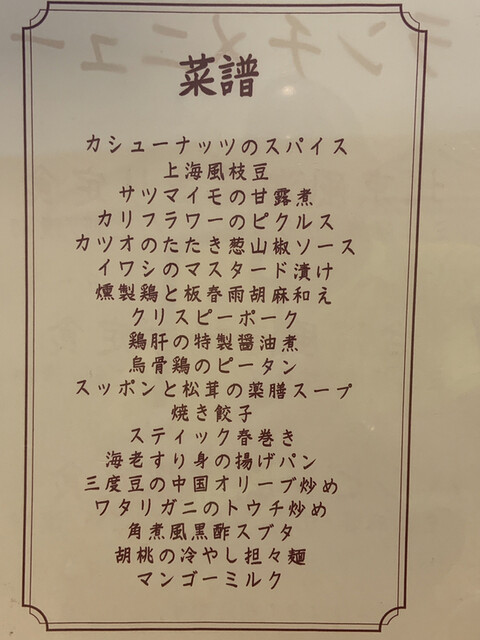 ランチメニュー
菜譜
カシューナッツのスパイス
上海風枝豆
サツマイモの甘露煮
カリフラワーのピクルス
カツオのたたき葱山椒ソース
イワシのマスタード漬け
燻製鶏と板春雨胡麻和え
クリスピーポーク
鶏肝の特製醤油煮
烏骨鶏のピータン
スッポンと松茸の薬膳スープ
焼き餃子
スティック春巻き
海老すり身の揚げパン
三度豆の中国オリーブ炒め
ワタリガニのトウチ炒め
角煮風黒酢スブタ
胡桃の冷やし担々麺
マンゴーミルク